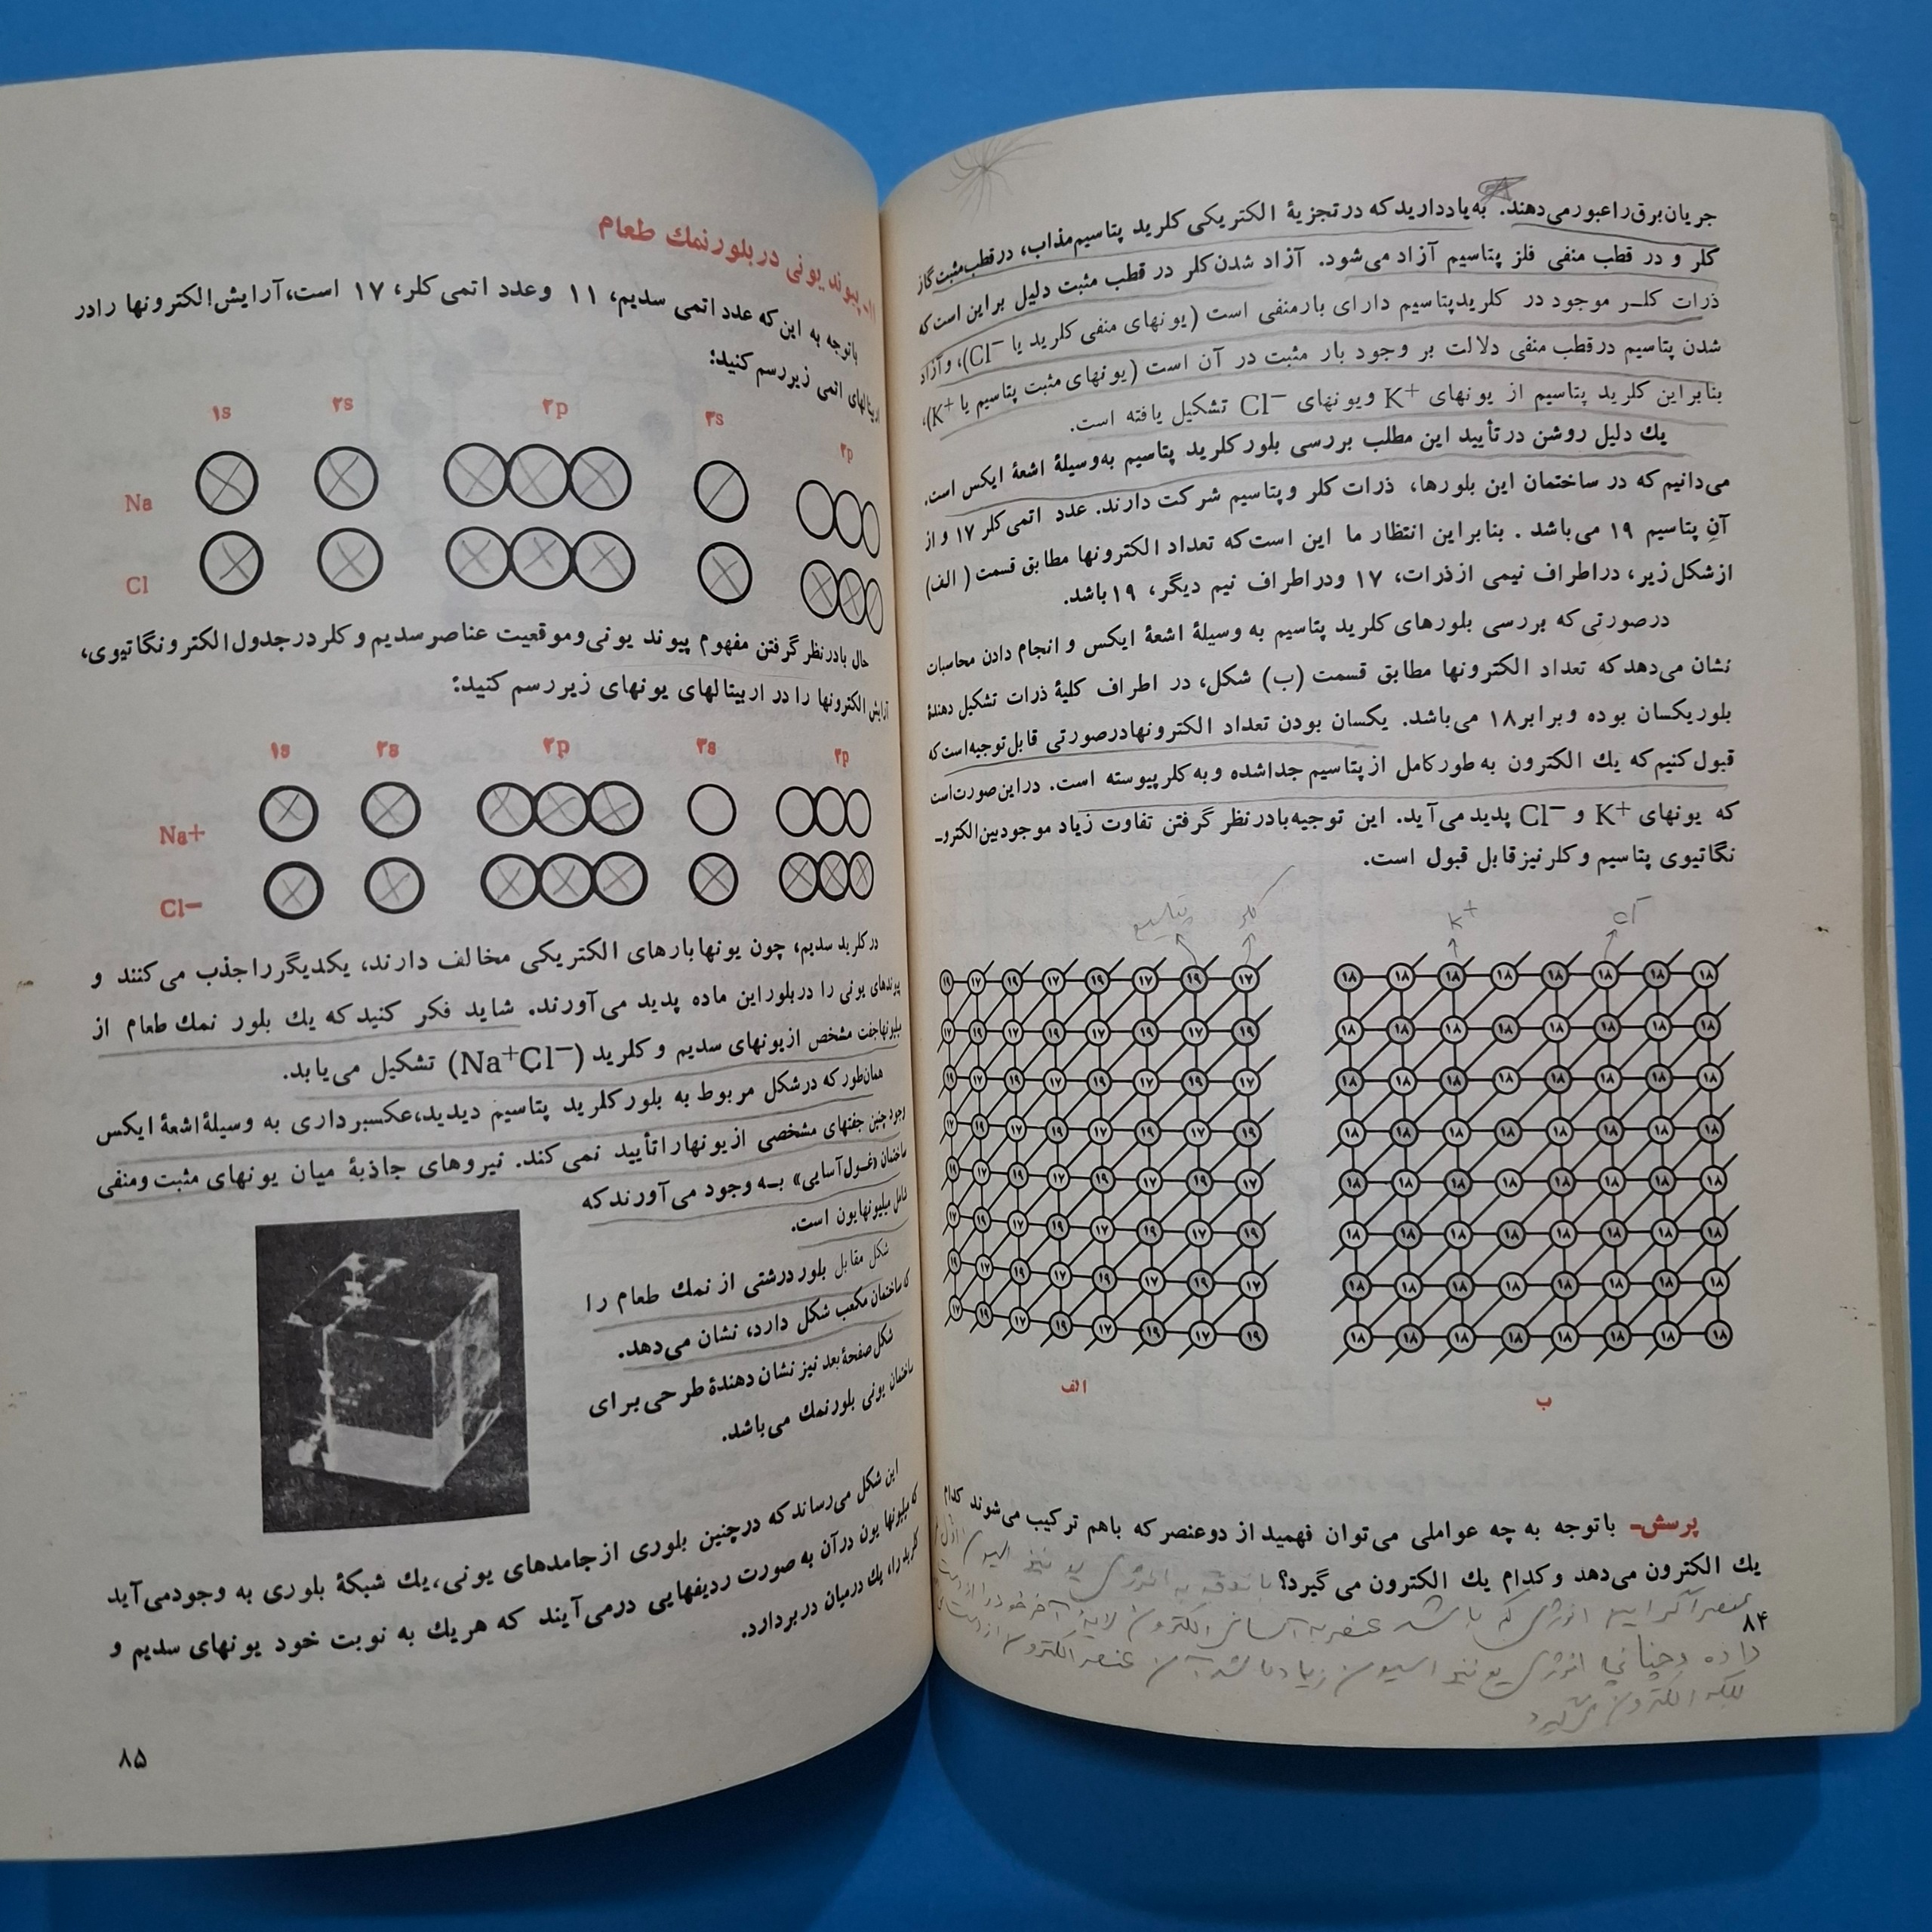 جریان برق را عبور می‌دهند. به یاد دارید که در تجزیهٔ الکتریکی کلرید پتاسیم مذاب، در قطب مثبت گاز
کلر و در قطب منفی فلز پتاسیم آزاد می‌شود. آزاد شدن کلر در قطب مثبت دلیل بر این است که
ذرات کلر موجود در کلرید پتاسیم دارای بار منفی است (یونهای منفی کلرید یا Cl−)، و آزاد
شدن پتاسیم در قطب منفی دلالت بر وجود بار مثبت در آن است (یونهای مثبت پتاسیم یا K+)،
بنابراین کلرید پتاسیم از یونهای K+ و یونهای Cl− تشکیل یافته است.
یك دلیل روشن در تأیید این مطلب بررسی بلور کلرید پتاسیم به‌وسیلهٔ اشعهٔ ایکس است.
می‌دانیم که در ساختمان این بلورها، ذرات کلر و پتاسیم شرکت دارند. عدد اتمی کلر ۱۷ و از
آنِ پتاسیم ۱۹ می‌باشد. بنابراین انتظار ما این است که تعداد الکترونها مطابق قسمت (الف)
از شکل زیر، در اطراف نیمی از ذرات، ۱۷ و در اطراف نیم دیگر، ۱۹ باشد.
در صورتی که بررسی بلورهای کلرید پتاسیم به وسیلهٔ اشعهٔ ایکس و انجام دادن محاسبات
نشان می‌دهد که تعداد الکترونها مطابق قسمت (ب) شکل، در اطراف کلیهٔ ذرات تشکیل دهندهٔ
بلور یکسان بوده و برابر ۱۸ می‌باشد. یکسان بودن تعداد الکترونها در صورتی قابل توجیه است که
قبول کنیم که یك الکترون به طور کامل از پتاسیم جدا شده و به کلر پیوسته است. در این صورت است
که یونهای K+ و Cl− پدید می‌آید. این توجیه با در نظر گرفتن تفاوت زیاد موجود بین الکترو-
نگاتیوی پتاسیم و کلر نیز قابل قبول است.
Cl− K+ کلر پتاسیم
۱۹ ۱۷ ۱۹ ۱۷ ۱۹ ۱۷ ۱۹ ۱۷
۱۷ ۱۹ ۱۷ ۱۹ ۱۷ ۱۹ ۱۷ ۱۹
۱۹ ۱۷ ۱۹ ۱۷ ۱۹ ۱۷ ۱۹ ۱۷
۱۷ ۱۹ ۱۷ ۱۹ ۱۷ ۱۹ ۱۷ ۱۹
۱۹ ۱۷ ۱۹ ۱۷ ۱۹ ۱۷ ۱۹ ۱۷
۱۷ ۱۹ ۱۷ ۱۹ ۱۷ ۱۹ ۱۷ ۱۹
۱۹ ۱۷ ۱۹ ۱۷ ۱۹ ۱۷ ۱۹ ۱۷
۱۷ ۱۹ ۱۷ ۱۹ ۱۷ ۱۹ ۱۷ ۱۹
الف
۱۸ ۱۸ ۱۸ ۱۸ ۱۸ ۱۸ ۱۸ ۱۸
۱۸ ۱۸ ۱۸ ۱۸ ۱۸ ۱۸ ۱۸ ۱۸
۱۸ ۱۸ ۱۸ ۱۸ ۱۸ ۱۸ ۱۸ ۱۸
۱۸ ۱۸ ۱۸ ۱۸ ۱۸ ۱۸ ۱۸ ۱۸
۱۸ ۱۸ ۱۸ ۱۸ ۱۸ ۱۸ ۱۸ ۱۸
۱۸ ۱۸ ۱۸ ۱۸ ۱۸ ۱۸ ۱۸ ۱۸
۱۸ ۱۸ ۱۸ ۱۸ ۱۸ ۱۸ ۱۸ ۱۸
۱۸ ۱۸ ۱۸ ۱۸ ۱۸ ۱۸ ۱۸ ۱۸
ب
پرسش- با توجه به چه عواملی می‌توان فهمید از دو عنصر که باهم ترکیب می‌شوند کدام
یك الکترون می‌دهد و کدام یك الکترون می‌گیرد؟ با توجه به انرژی
عنصر اگر این انرژی کم باشد عنصر به آسانی الکترون لایهٔ آخر خود را از دست
داده و چنانچه انرژی زیاد باشد آن عنصر الکترون از دست
بلکه الکترون می‌گیرد
۸۴
پیوند یونی در بلور نمك طعام
با توجه به این که عدد اتمی سدیم، ۱۱ و عدد اتمی کلر، ۱۷ است، آرایش الکترونها را در
اربیتالهای اتمی زیر رسم کنید:
۱s ۲s ۲p ۳s ۳p
Na
Cl
حال با در نظر گرفتن مفهوم پیوند یونی و موقعیت عناصر سدیم و کلر در جدول الکترونگاتیوی،
آرایش الکترونها را در اربیتالهای یونهای زیر رسم کنید:
۱s ۲s ۲p ۳s ۳p
Na+
Cl−
در کلرید سدیم، چون یونها بارهای الکتریکی مخالف دارند، یکدیگر را جذب می‌کنند و
پیوندهای یونی را در بلور این ماده پدید می‌آورند. شاید فکر کنید که یك بلور نمك طعام از
میلیونها جفت مشخص از یونهای سدیم و کلرید (Na+Cl−) تشکیل می‌یابد.
همان‌طور که در شکل مربوط به بلور کلرید پتاسیم دیدید، عکسبرداری به وسیلهٔ اشعهٔ ایکس
وجود چنین جفتهای مشخصی از یونها را تأیید نمی‌کند. نیروهای جاذبهٔ میان یونهای مثبت و منفی
ساختمان «غول‌آسایی» به وجود می‌آورند که
شامل میلیونها یون است.
شکل مقابل بلور درشتی از نمك طعام را
که ساختمان مکعب شکل دارد، نشان می‌دهد.
شکل صفحهٔ بعد نیز نشان دهندهٔ طرحی برای
ساختمان یونی بلور نمك می‌باشد.
این شکل می‌رساند که در چنین بلوری از جامدهای یونی، یك شبکهٔ بلوری به وجود می‌آید
که میلیونها یون در آن به صورت ردیفهایی درمی‌آیند که هریك به نوبت خود یونهای سدیم و
کلرید را، یك درمیان در بردارد.
۸۵